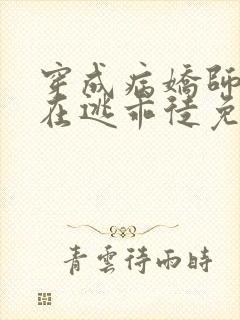 穿成病嬌師
在逃乖徒免
青雲待雨時